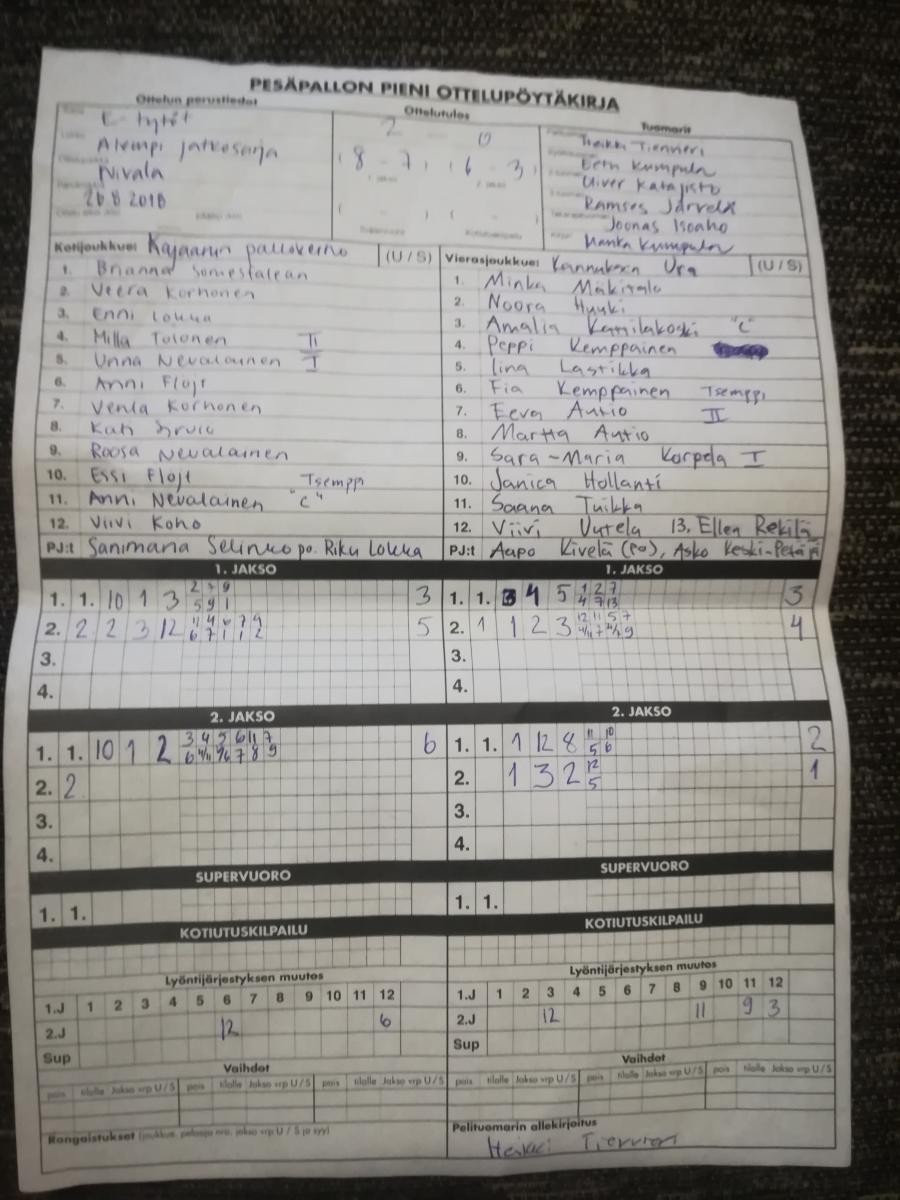 PESÄPALLON PIENI OTTELUPÖYTÄKIRJA
Ottelun perustiedot
Ottelutulos
Tuomarit
E-tytöt
Alempi jatkosarja
Nivala
26 8 2018
2 0
(8 - 7) (6 - 3)
( - ) ( - )
Eetu Kumpula
Oliver Katajisto
Ramses Järvelä
Joonas Isoaho
Manka Kumpula
Kotijoukkue: Kajaanin (U / S)
1. Brianna
2. Veera Korhonen
3. Enni Lokka
4. Milla Tolonen II
5. Unna Nevalainen I
6. Anni Flöjt
7. Venla Korhonen
8. Kati
9. Roosa Nevalainen
10. Essi Flöjt Tsemppi
11. Anni Nevalainen "C"
12. Viivi Koho
PJ:t Sanimana po. Riku Lokka
Vierasjoukkue: Kannuksen Ura (U / S)
1. Minka Mäkitalo
2. Noora Huuki
3. Amalia "C"
4. Peppi Kemppainen
5. Iina Lastikka
6. Fia Kemppainen Tsemppi
7. Eeva Autio II
8. Martta Autio
9. Sara-Maria Korpela I
10. Janica Hollanti
11. Saana Tuikka
12. Viivi Uutela 13. Ellen Rekilä
PJ:t Aapo Kivelä (PO), Asko Keski-Petäjä
1. JAKSO
1. 1. 10 1 3 2 7 9 3
5 9 1
2. 2 2 3 12 11 4 6 7 9 5
6 7 1 1 2
3.
4.
1. JAKSO
1. 1. 3 4 5 1 2 7 3
4 7 13
2. 1 1 2 3 12 11 5 7 4
3.
4.
2. JAKSO
1. 1. 10 1 2 3 4 5 6 11 7 6
6 4/11 7 8 9
2. 2
3.
4.
2. JAKSO
1. 1. 1 12 8 11 10 2
5 6
2. 1 3 2 12 1
5
3.
4.
SUPERVUORO
1. 1.
SUPERVUORO
1. 1.
KOTIUTUSKILPAILU
KOTIUTUSKILPAILU
Lyöntijärjestyksen muutos
1.J 1 2 3 4 5 6 7 8 9 10 11 12
2.J 12 6
Sup
Lyöntijärjestyksen muutos
1.J 1 2 3 4 5 6 7 8 9 10 11 12
2.J 12 11 9 3
Sup
Vaihdot
pois tilalle Jakso vrp U / S pois tilalle Jakso vrp U / S pois tilalle Jakso vrp U / S
Vaihdot
pois tilalle Jakso vrp U / S pois tilalle Jakso vrp U / S pois tilalle Jakso vrp U / S
Rangaistukset (joukkue, pelaaja nro, jakso vrp U / S ja syy)
Pelituomarin allekirjoitus